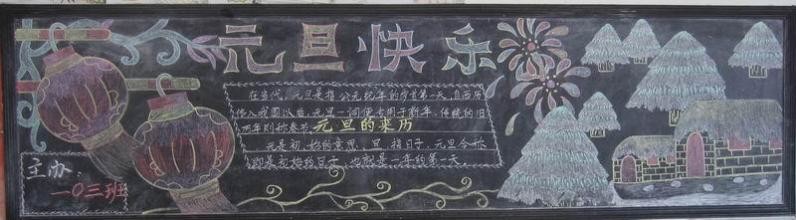 元旦快乐
在当代，元旦是指公元纪年的岁首第一天，自西历
传入我国以后，元旦一词便专用于新年，传统的旧
历年则称春节
元旦的来历
元是初，始的意思，旦，指日子，元旦合称
即是初始的日子，也就是一年的第一天。
主办：
一〇三班